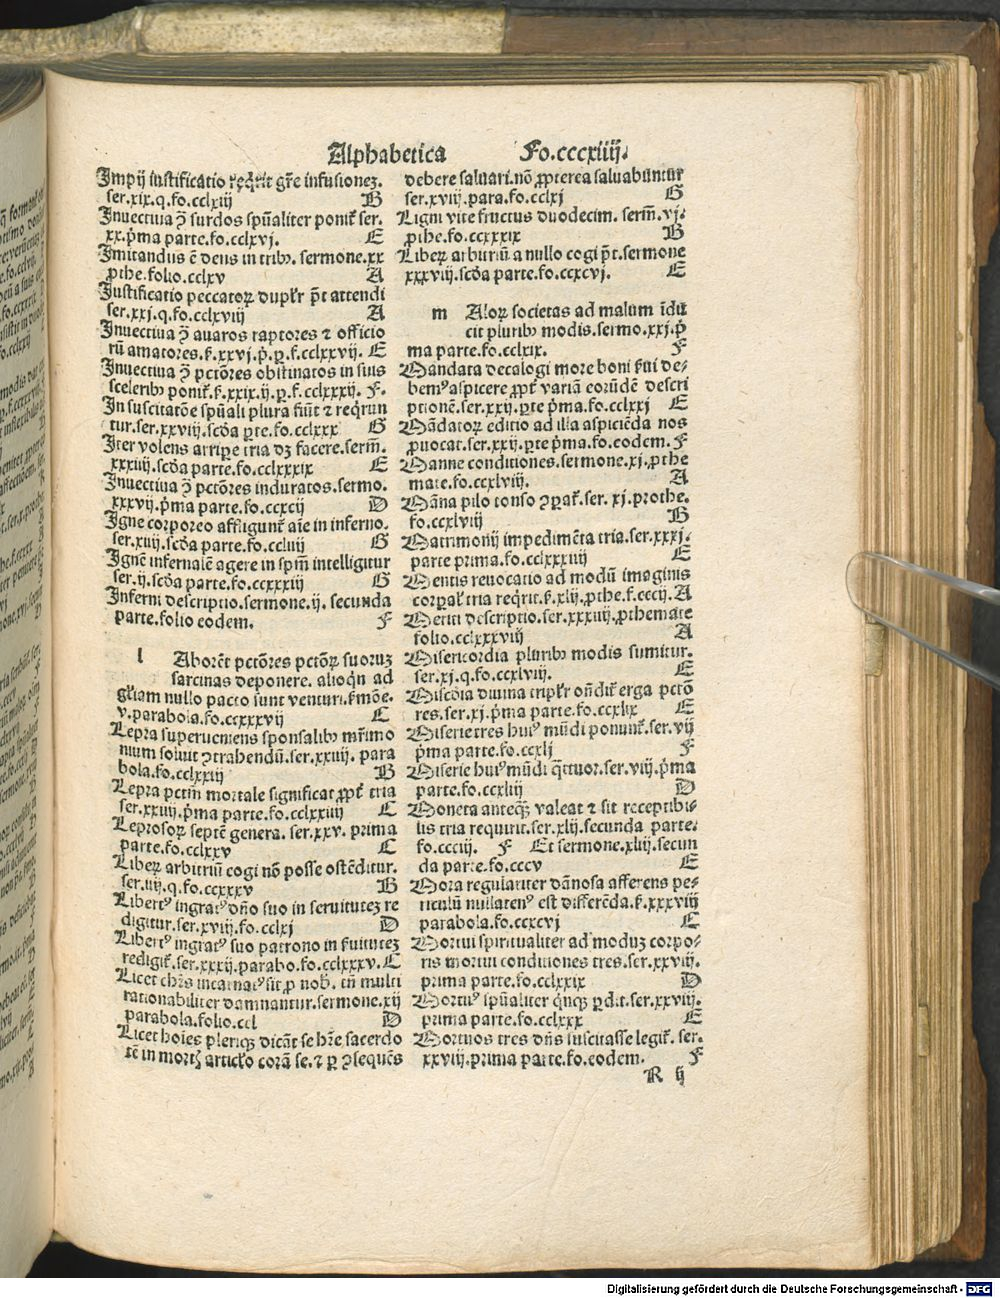 Alphabetica Fo.cccxiiij.
Impij iustificatio reqͥrit gr̄e infusionez.
ser.xix.q.fo.cclxiij B
Inuectiua ꝯ̄ surdos spūaliter ponit̉ ser.
xx.p̄ma parte.fo.cclxvj. E
Imitandus ē deus in tribꝰ. sermone.xx
ꝓthe.folio.cclxv A
Iustificatio peccatoꝝ dupl'r p̄t attendi
ser.xxj.q.fo.cclxviij A
Inuectiua ꝯ̄ auaros raptores ⁊ officio
rū amatores.ẜ.xxvj.p̄.ꝑ.f.cclxxvij. E
Inuectiua ꝯ̄ pctōres obstinatos in suis
sceleribꝰ ponit̉.ẜ.xxix.ij.ꝑ.f.cclxxxij. F.
In suscitatōe spūali plura fiūt ⁊ reqͥrun
tur.ser.xxviij.scōa ꝑte.fo.cclxxx G
Iter volens arripe tria dꝫ facere.serm̄.
xxxiiij.scōa parte.fo.cclxxxix E
Inuectiua ꝯ̄ pctōres induratos.sermo.
xxxvij.p̄ma parte.fo.ccxcij D
Igne corporeo affligunt̉ aīe in inferno.
ser.xiiij.scōa parte.fo.ccliiij G
Ignē infernalē agere in spm̄ intelligitur
ser.ij.scōa parte.fo.ccxxxiij G
Inferni descriptio.sermone.ij. secunda
parte.folio eodem. F
l Aborēt pctōres pctōꝝ suoruz
sarcinas deponere. alioqn̄ ad
gl'iam nullo pacto sunt venturi.ẜmōe.
v.parabola.fo.ccxxxvij C
Lepra superueniens sponsalibꝰ mr̄imo
nium soluit ꝯtrahendū.ser.xxiiij. para
bola.fo.cclxxiij B
Lepra pctm̄ mortale significat ꝓpt̉ tria
ser.xxiiij.p̄ma parte.fo.cclxxiiij C
Leprosoꝝ septē genera. ser.xxv. prima
parte.fo.cclxxv C
Liberꝝ arbitriū cogi nō posse ostēditur.
ser.iiij.q.fo.ccxxxv B
Libertꝰ ingratꝰ dño suo in seruitutez re
digitur.ser.xviij.fo.cclxj D
Libertꝰ ingratꝰ suo patrono in ẜuitutez
redigit̉.ser.xxxij.parabo.fo.cclxxxv. C
Licet chr̄s incarnatꝰ sit ꝓ nob̄. tn̄ multi
rationabiliter damnantur.sermone.xij
parabola.folio.ccl D
Licet hoīes pleriqꝫ dicāt se hr̄e sacerdo
tē in mortꝫ articl'o corā se.⁊ ꝑ ꝯsequēs
debere saluari.nō ꝓpterea saluabūntur
ser.xviij.para.fo.cclxj G
Ligni vite fructus duodecim. serm̄.vj.
ꝓthe.fo.ccxxxix B
Liberꝝ arbitriū a nullo cogi p̄t.sermone
xxxviij.scōa parte.fo.ccxcvj. E
m Aloꝝ societas ad malum īdu
cit pluribꝰ modis.sermo.xxj.p̄
ma parte.fo.cclxix. F
Mandata decalogi more boni ẜui de-
bemꝰ aspicere ꝓpt̉ variā eorūdē descri
ptionē.ser.xxij.ꝑte p̄ma.fo.cclxxj E
Mādatoꝝ editio ad illa aspiciēda nos
ꝓuocat.ser.xxij.ꝑte p̄ma.fo.eodem. F
Manne conditiones.sermone.xj.ꝓthe
mate.fo.ccxlviij. A
Māna pilo tonso ꝯꝑat̉.ser. xj.prothe.
fo.ccxlviij B
Matrimonij impedimēta tria.ser.xxxj.
parte prima.fo.cclxxxiiij E
Mentis reuocatio ad modū imaginis
corꝑal' tria reqͥrit.ẜ.xlij.ꝓthe.f.cccij.A
Meriti descriptio.ser.xxxiiij.ꝓthemate
folio.cclxxxviij A
Misericordia pluribꝰ modis sumitur.
ser.xj.q.fo.ccxlviij. E
Miscd̄ia diuina tripl'r oñdit̉ erga pctō
res.ser.xj.p̄ma parte.fo.ccxlix E
Miserie tres huiꝰ mūdi ponunt̉.ser.vij
p̄ma parte.fo.ccxlj F
Miserie huiꝰ mūdi qͣttuor.ser.viij.p̄ma
parte.fo.ccxliij D
Moneta anteqꝫ valeat ⁊ sit receptibi-
lis tria requirit.ser.xlij.secunda parte.
fo.ccciij. F Et sermone.xliij.secun
da parte.fo.cccv E
Mora regulariter dānosa afferens pe-
riculū nullatenꝰ est differēda.ẜ.xxxviij
parabola.fo.ccxcvj C
Mortui spiritualiter ad moduz corpo-
ris mortui conditiones tres.ser.xxviij.
prima parte.fo.cclxxix D
Mortuꝰ spūaliter qͥnqꝫ ꝑdit.ser.xxviij.
prima parte.fo.cclxxx E
Mortuos tres dñs suscitasse legit̉. ser.
xxviij.prima parte.fo.eodem. F
R ij
Digitalisierung gefördert durch die Deutsche Forschungsgemeinschaft - DFG